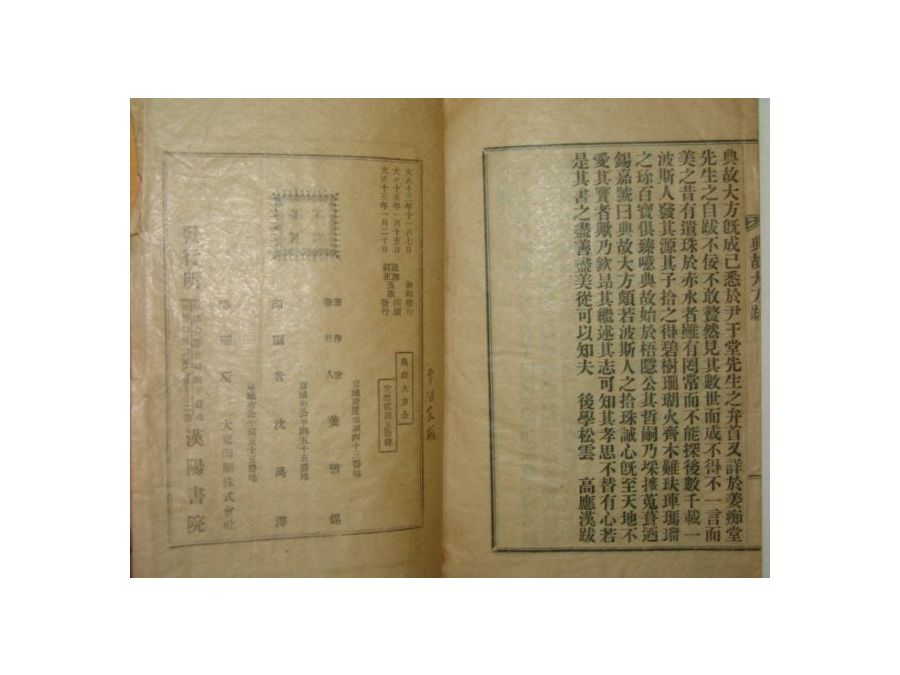 典故大方跋
典故大方既成已悉於尹于堂先生之弁首又詳於姜痴堂
先生之自跋不佞不敢贅然見其數世而成不得不一言而
美之昔有遺珠於赤水者雖有罔常而不能探後數千載一
波斯人發其源其子拾之得碧樹珊瑚火齊木難玞琿瑪瑠
之珍百寶俱臻噫典故始於梧隱公其哲嗣乃埰摭蒐葺迺
錫嘉號曰典故大方頗若波斯人之拾珠誠心旣至天地不
愛其寶者歟乃欽昻其繼述其志可知其孝思不替有心若
是其書之盡善盡美從可以知夫 後學松雲 高應漢跋
大正十三年十一月七日 初版發行
大正十五年一月十五日 追加五版印刷
大正十五年一月二十日 訂正 發行
典故大方全
著作兼
發行人 姜斅錫
京城府公平洞五十五番地
印刷者 沈禹澤
京城府公平洞五十五番地
印刷所 大東印刷株式會社
發行所 漢陽書院